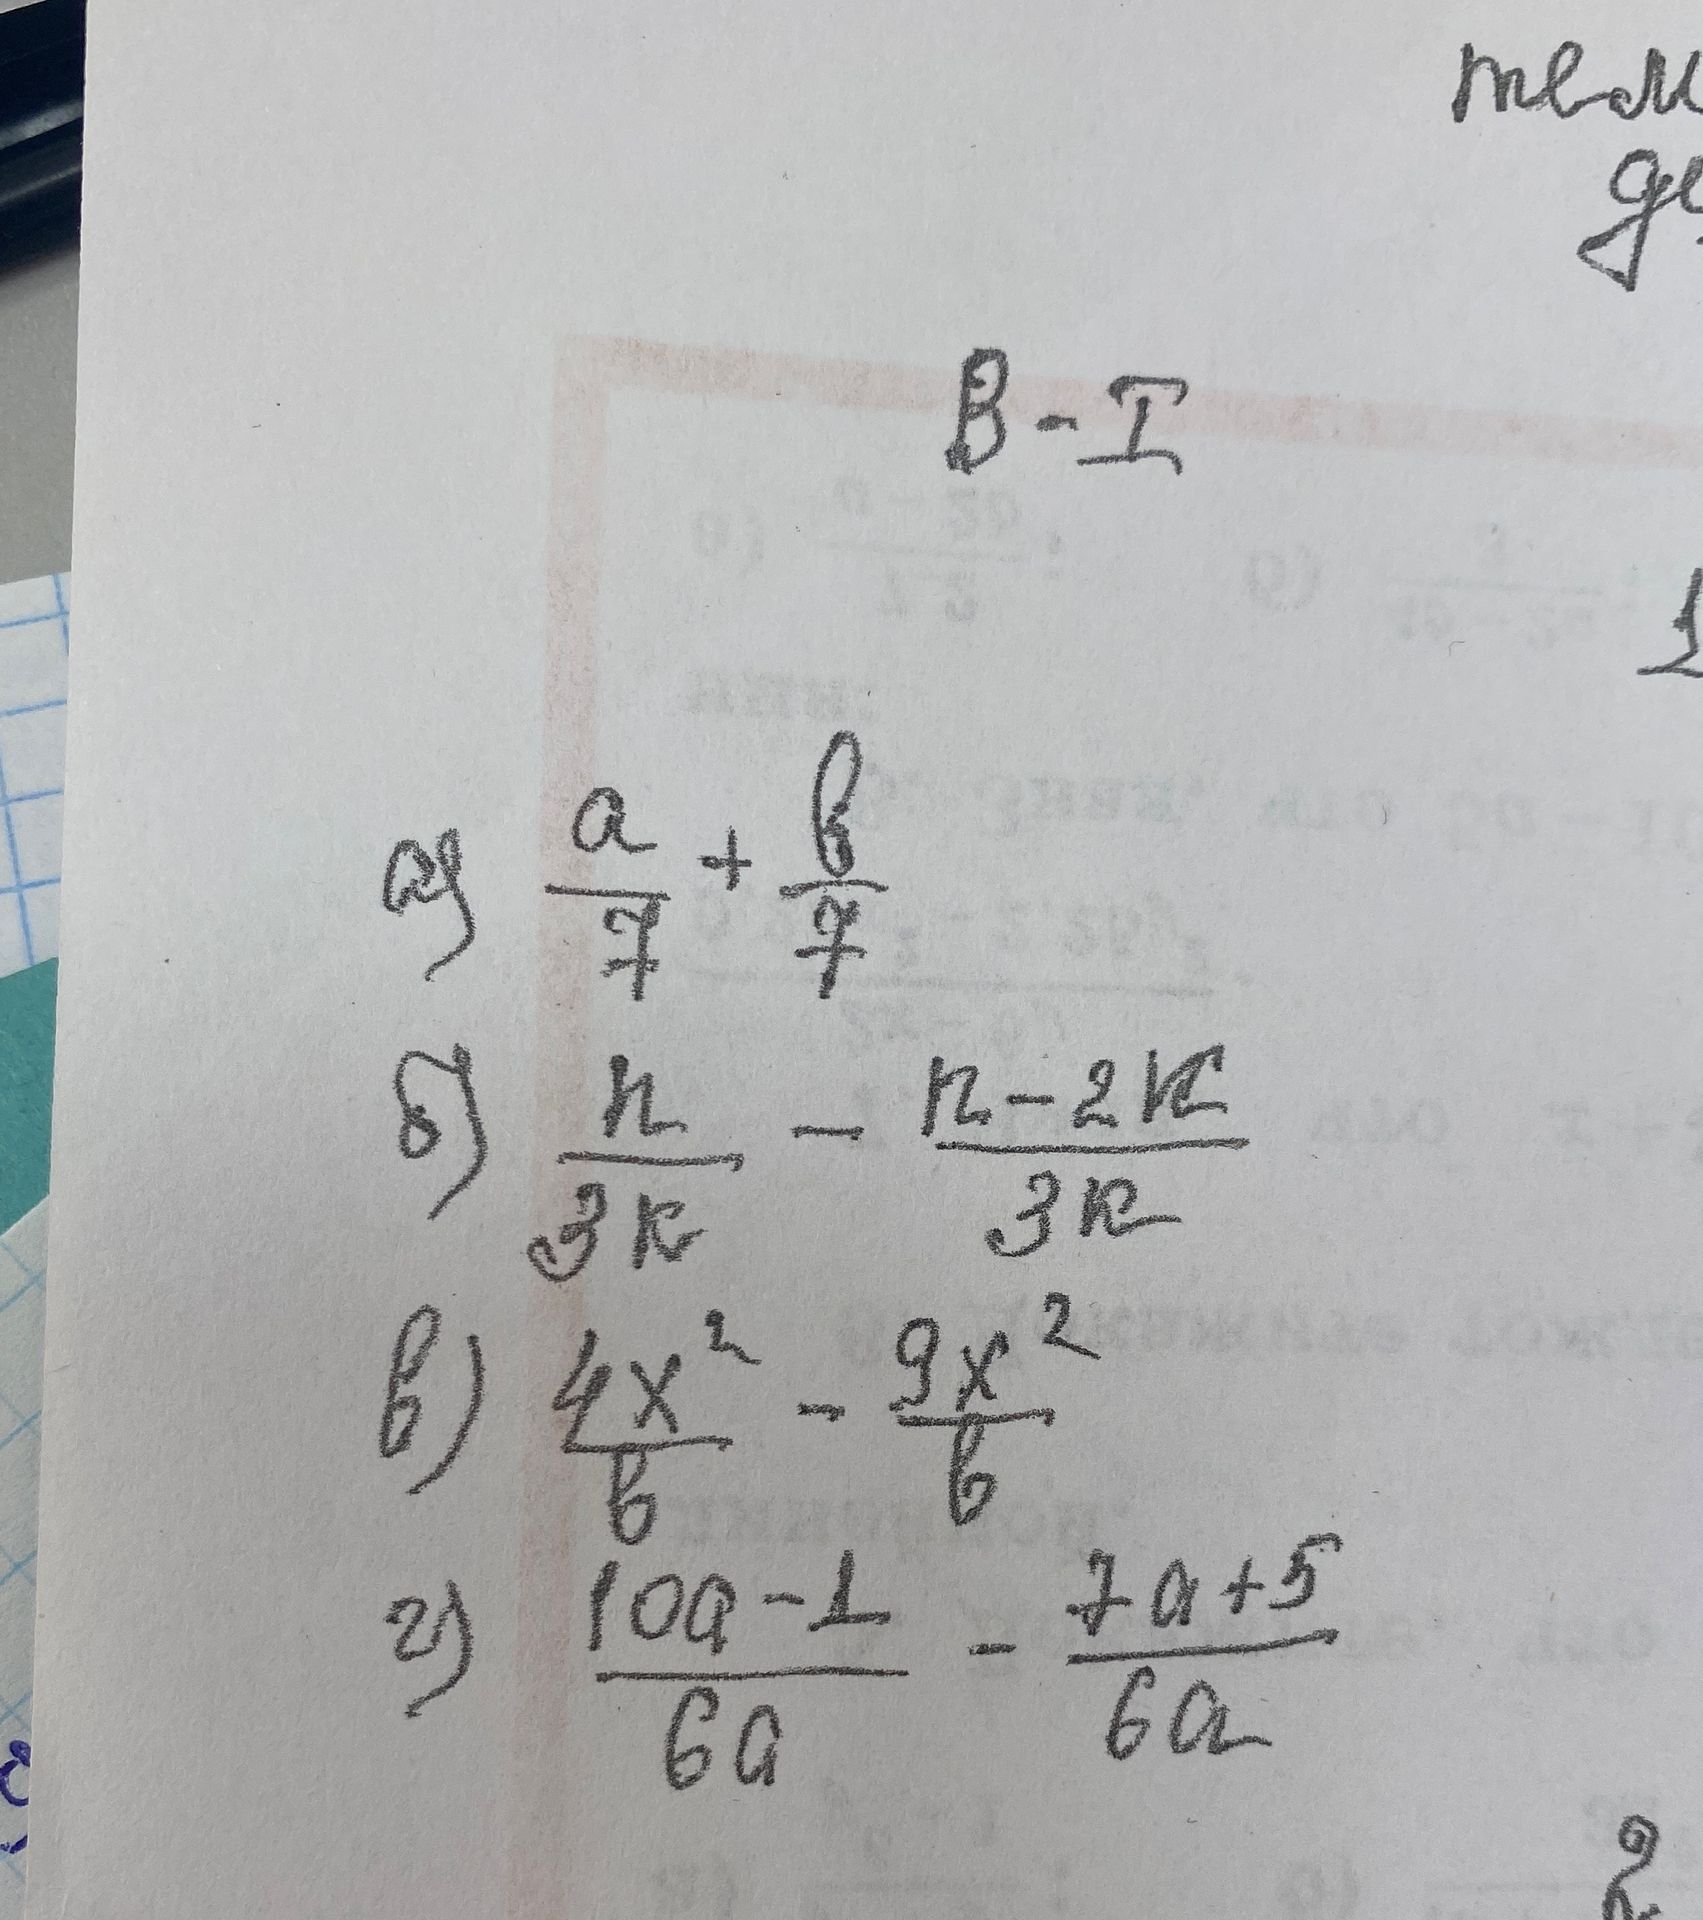 В - I
1
а) a/7 + b/7
б) n/3k - n-2k/3k
в) 4x²/b - 9x²/b
г) 10a-1/6a - 7a+5/6a
2